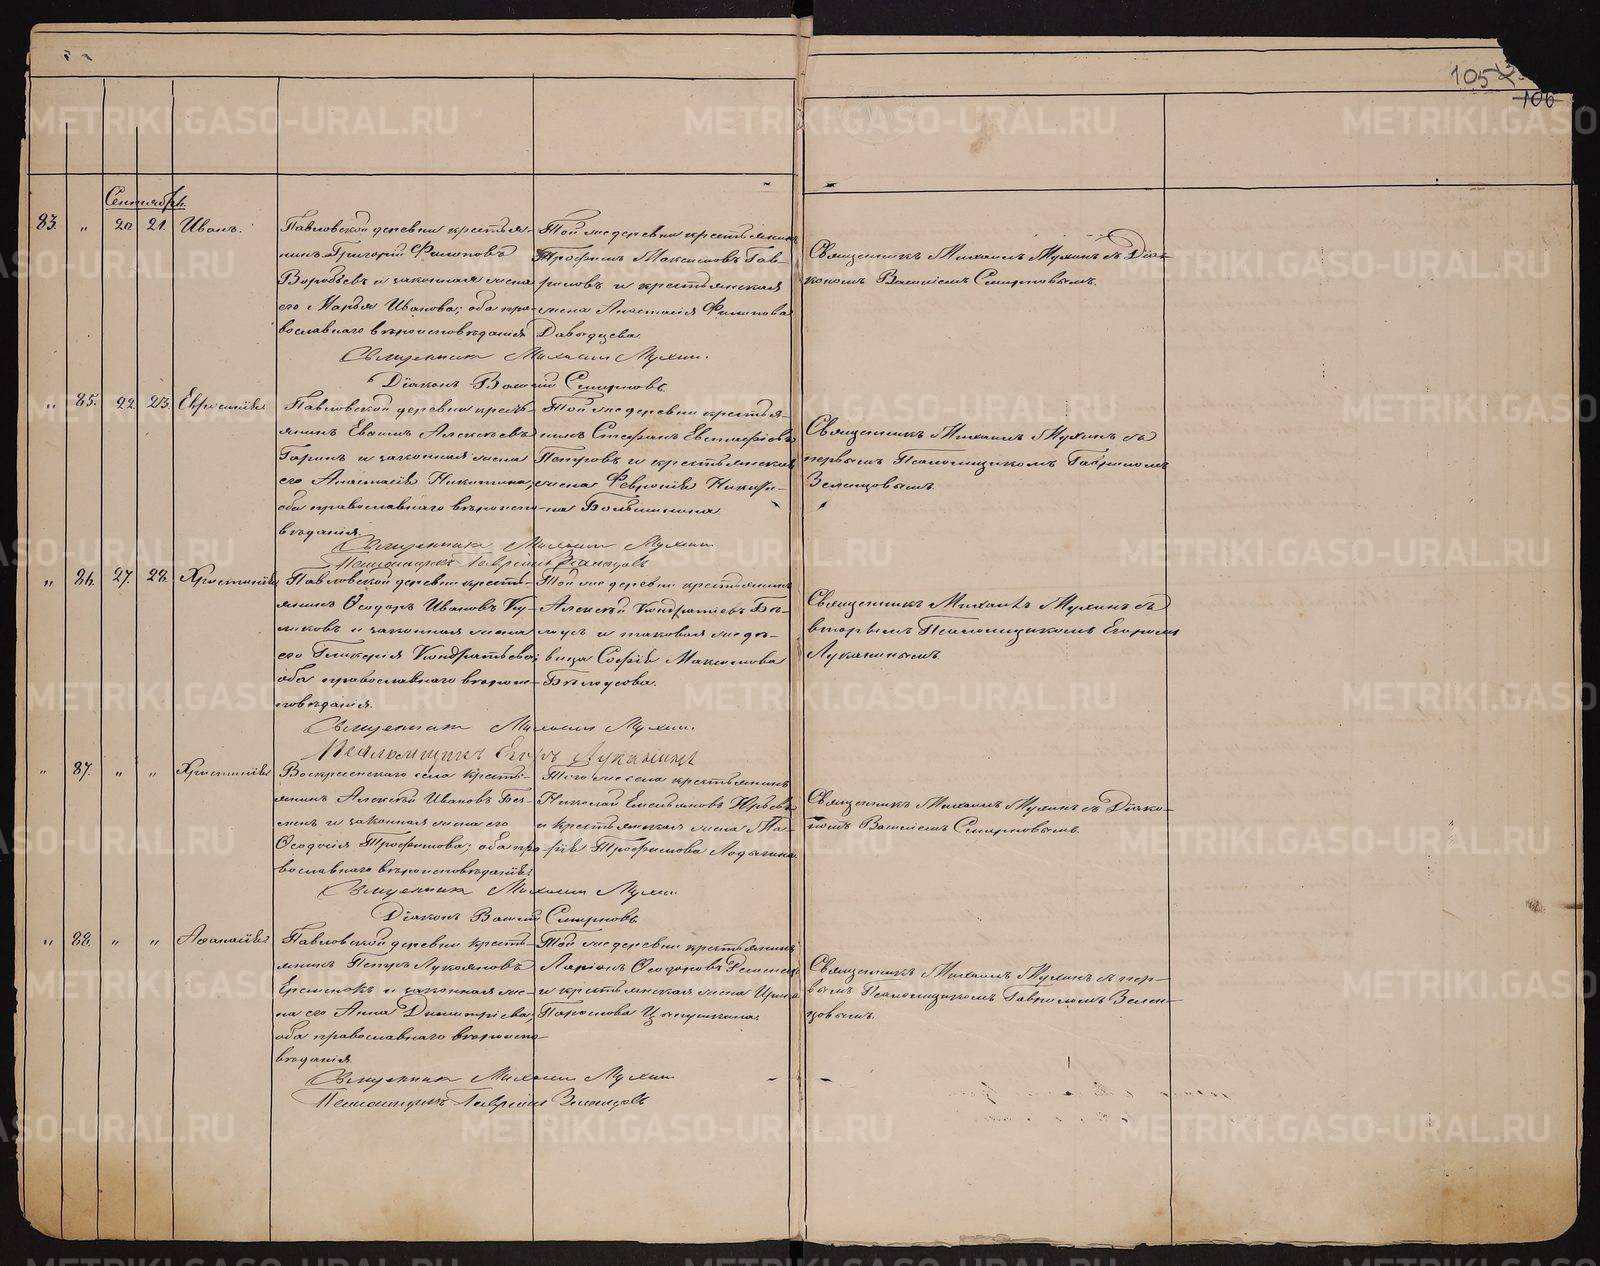 105
106
Сентябрь.
83. " 20 21. Иванъ.
Павловской деревни крестья-
нинъ Григорій Филиповъ
Воробьевъ и законная жена
его Марья Иванова; оба пра-
вославнаго вѣроисповѣданія
Той же деревни крестьянинъ
Трофимъ Максимовъ Гав-
риловъ и крестьянская
жена Анастасія Филипова
Давыдцева.
Священникъ Михаилъ Мухинъ съ Діа-
кономъ Василіемъ Смирновымъ.
Священникъ Михаилъ Мухинъ.
Діаконъ Василій Смирновъ.
" 85. 22. 23. Евфросинія
Павловской деревни кресть-
янинъ Алексѣевъ
и законная жена
его Анастасія Никитина;
оба православнаго вѣроиспо-
вѣданія.
Той же деревни крестья-
нинъ Стефанъ Евстафіевъ
Петровъ и крестьянская
жена Февронія Никити-
на
Священникъ Михаилъ Мухинъ съ
первымъ Псаломщикомъ Гавріиломъ
Зеленцовымъ.
Священникъ Михаилъ Мухинъ
Псаломщикъ Гавріилъ Зеленцовъ
" 86. 27. 28. Христинія
Павловской деревни кресть-
янинъ Ѳеодоръ Ивановъ Ку-
ликовъ и законная жена
его Гликерія Кондратьева;
оба православнаго вѣроис-
повѣданія.
Той же деревни крестьянинъ
Алексѣй Кондратьевъ Бѣ-
лоусъ и таковая же дѣ-
вица Софія Максимова
Бѣлоусова.
Священникъ Михаилъ Мухинъ съ
вторымъ Псаломщикомъ Егоромъ
Луканинымъ.
Священникъ Михаилъ Мухинъ.
Псаломщикъ Егоръ Луканинъ
" 87. " " Христинія
Воскресенскаго села кресть-
янинъ Алексѣй Ивановъ
и законная жена его
Ѳеодосія Трофимова; оба пра-
вославнаго вѣроисповѣданія.
Того же села крестьянинъ
Николай Емельяновъ Юрьевъ
и крестьянская жена Ма-
рія Трофимова Лодыгина
Священникъ Михаилъ Мухинъ съ Діако-
номъ Василіемъ Смирновымъ.
Священникъ Михаилъ Мухинъ
Діаконъ Василій Смирновъ.
" 88. " " Аѳанасія
Павловской деревни кресть-
янинъ Петръ Лукояновъ
и законная же-
на его Анна Димитріева;
оба православнаго вѣроиспо-
вѣданія.
Той же деревни крестьянинъ
Ларіонъ Ѳеодоровъ
и крестьянская жена Ирина
Священникъ Михаилъ Мухинъ съ пер-
вымъ Псаломщикомъ Гавріиломъ Зелен-
цовымъ.
Священникъ Михаилъ Мухинъ
Псаломщикъ Гавріилъ Зеленцовъ
METRIKI.GASO-URAL.RU